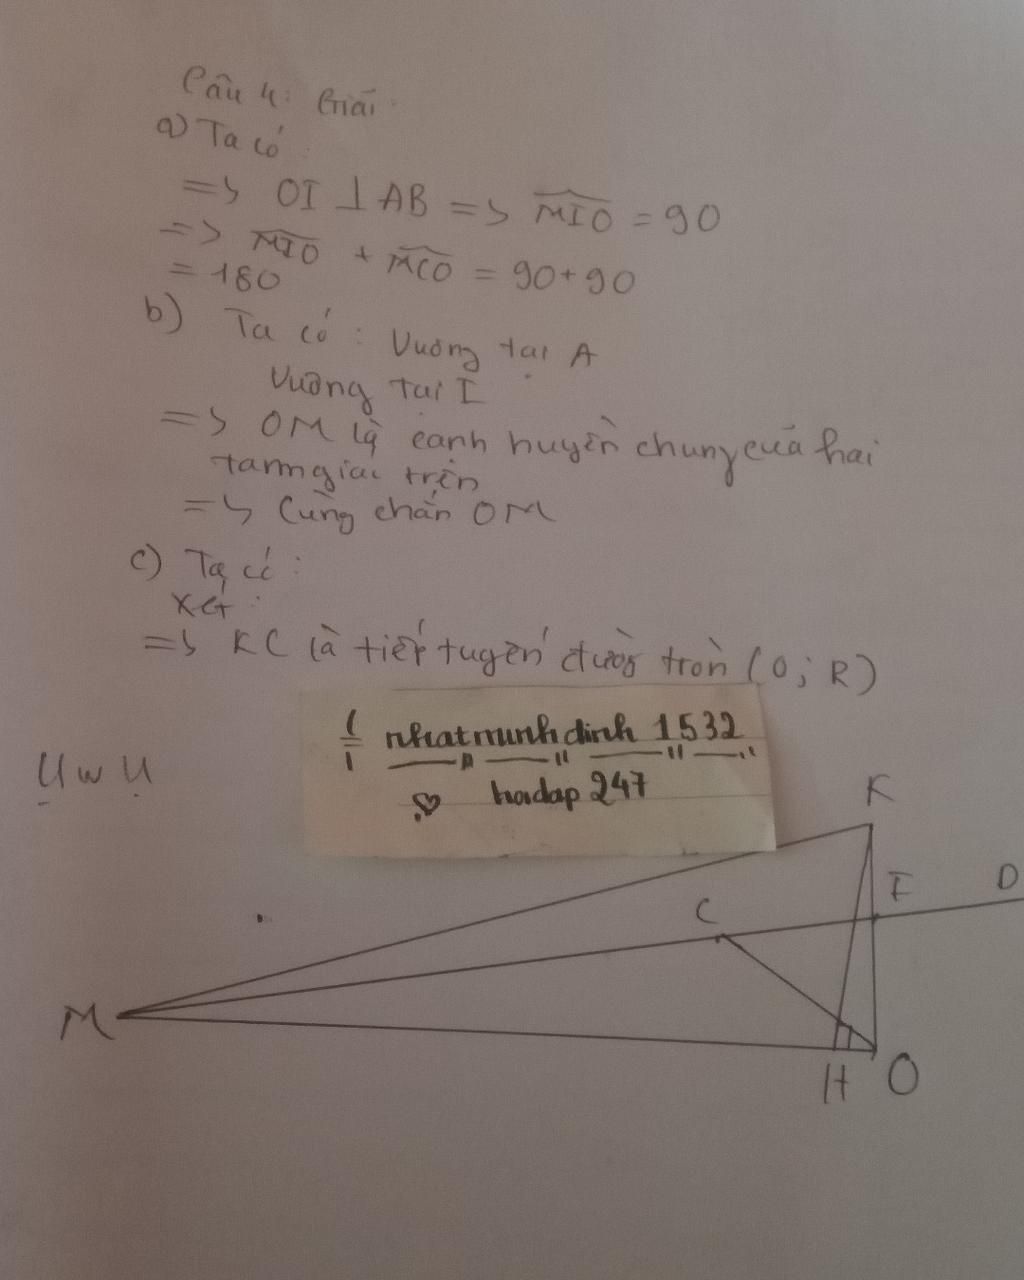 Câu 4: Giải
a) Ta có :
=> OI ⊥ AB => MIO = 90
=> MIO + MCO = 90+90
= 180
b) Ta có : Vuông tại A
Vuông tại I
=> OM là cạnh huyền chung của hai
tam giác trên
=> Cùng chắn OM
c) Ta có :
Xét :
=> KC là tiếp tuyến đường tròn (O; R)
nhatminhdinh 1532
hoidap 247
U w U
K
I D
C
M
H O